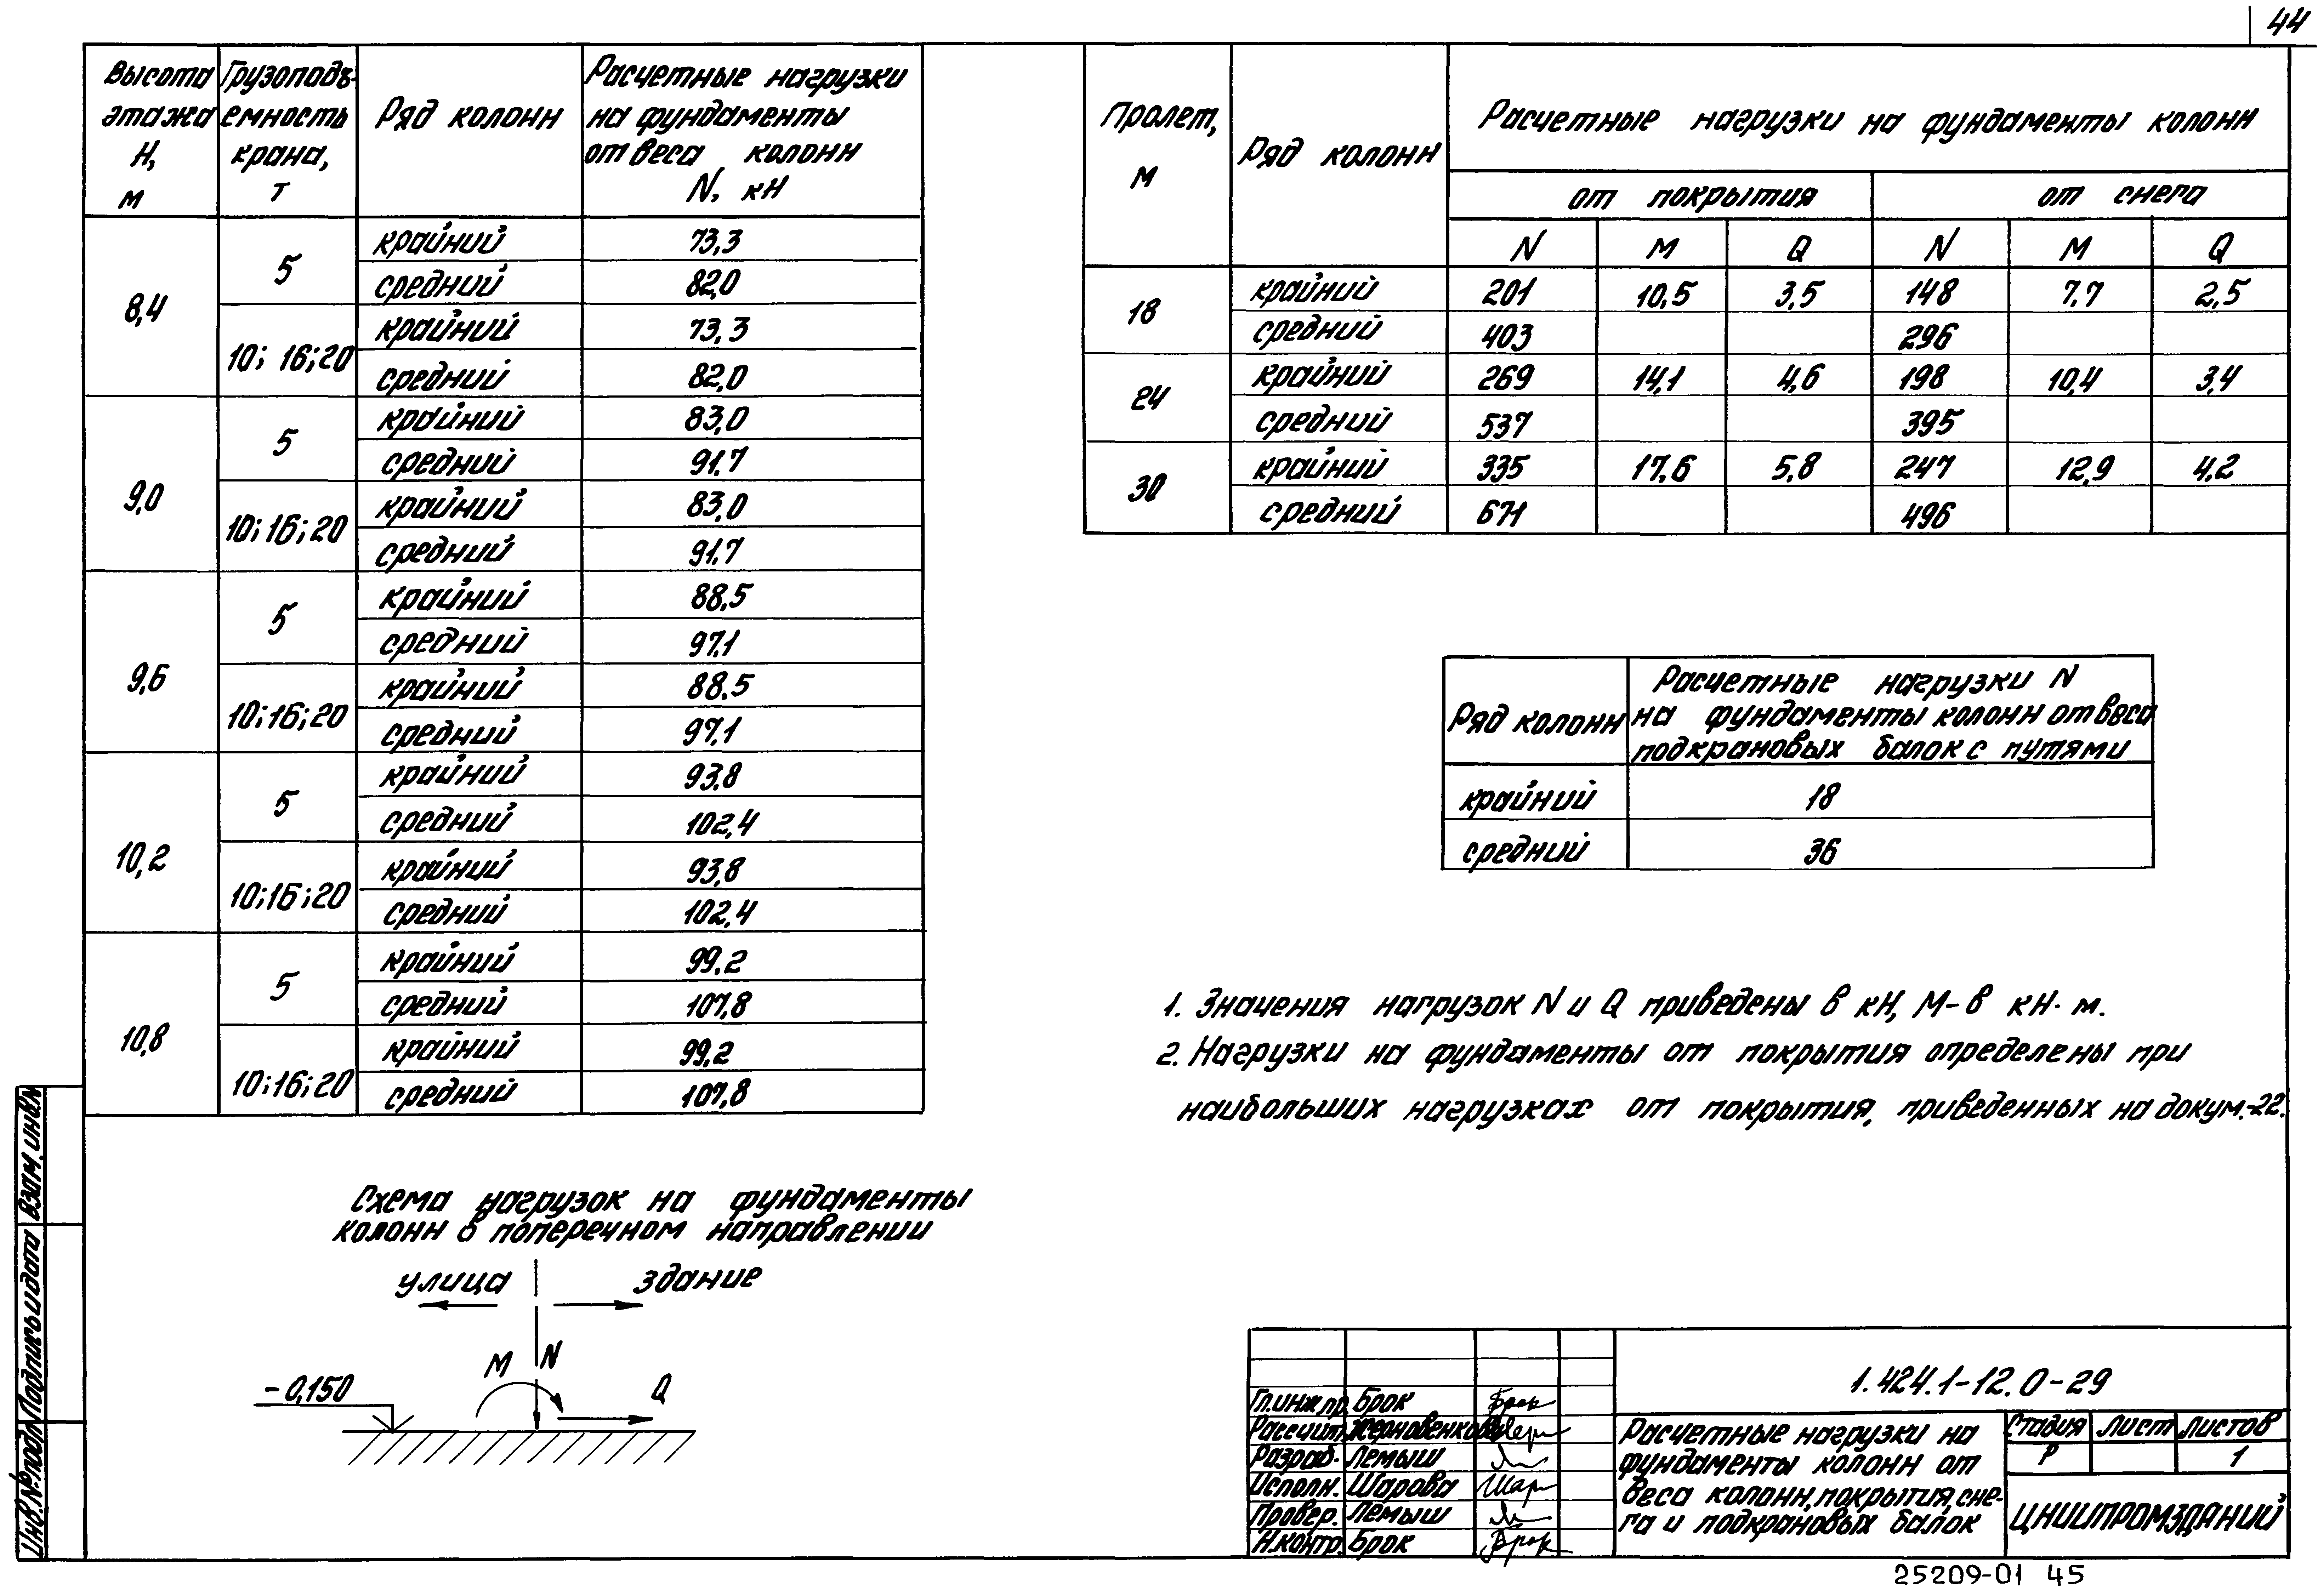 44
Высота этажа Н, м | Грузоподъ-емность крана, т | Ряд колонн | Расчетные нагрузки на фундаменты от веса колонн N, кН
8,4 | 5 | крайний | 73,3
средний | 82,0
10; 16; 20 | крайний | 73,3
средний | 82,0
9,0 | 5 | крайний | 83,0
средний | 91,7
10; 16; 20 | крайний | 83,0
средний | 91,7
9,6 | 5 | крайний | 88,5
средний | 97,1
10; 16; 20 | крайний | 88,5
средний | 97,1
10,2 | 5 | крайний | 93,8
средний | 102,4
10; 16; 20 | крайний | 93,8
средний | 102,4
10,8 | 5 | крайний | 99,2
средний | 107,8
10; 16; 20 | крайний | 99,2
средний | 107,8
Пролет, м | Ряд колонн | Расчетные нагрузки на фундаменты колонн
от покрытия | от снега
N | M | Q | N | M | Q
18 | крайний | 201 | 10,5 | 3,5 | 148 | 7,7 | 2,5
средний | 403 | 296
24 | крайний | 269 | 14,1 | 4,6 | 198 | 10,4 | 3,4
средний | 537 | 395
30 | крайний | 335 | 17,6 | 5,8 | 247 | 12,9 | 4,2
средний | 671 | 496
Ряд колонн | Расчетные нагрузки N на фундаменты колонн от веса подкрановых балок с путями
крайний | 18
средний | 36
1. Значения нагрузок N и Q приведены в кН, М- в кН·м.
2. Нагрузки на фундаменты от покрытия определены при
наибольших нагрузках от покрытия, приведенных на докум.-22.
Схема нагрузок на фундаменты
колонн в поперечном направлении
улица здание
M N Q
-0,150
Взам. инв.№
Подпись и дата
Инв.№ подл.
Гл.инж.пр. Брок Брок
Рассчит. Жерновенкова
Разраб. Лемыш
Исполн. Шарова Шар
Провер. Лемыш
Н.контр. Брок Брок
1.424.1-12.0-29
Расчетные нагрузки на
фундаменты колонн от
веса колонн, покрытия, сне-
га и подкрановых балок
Стадия Лист Листов
Р 1
ЦНИИПРОМЗДАНИЙ
25209-01 45